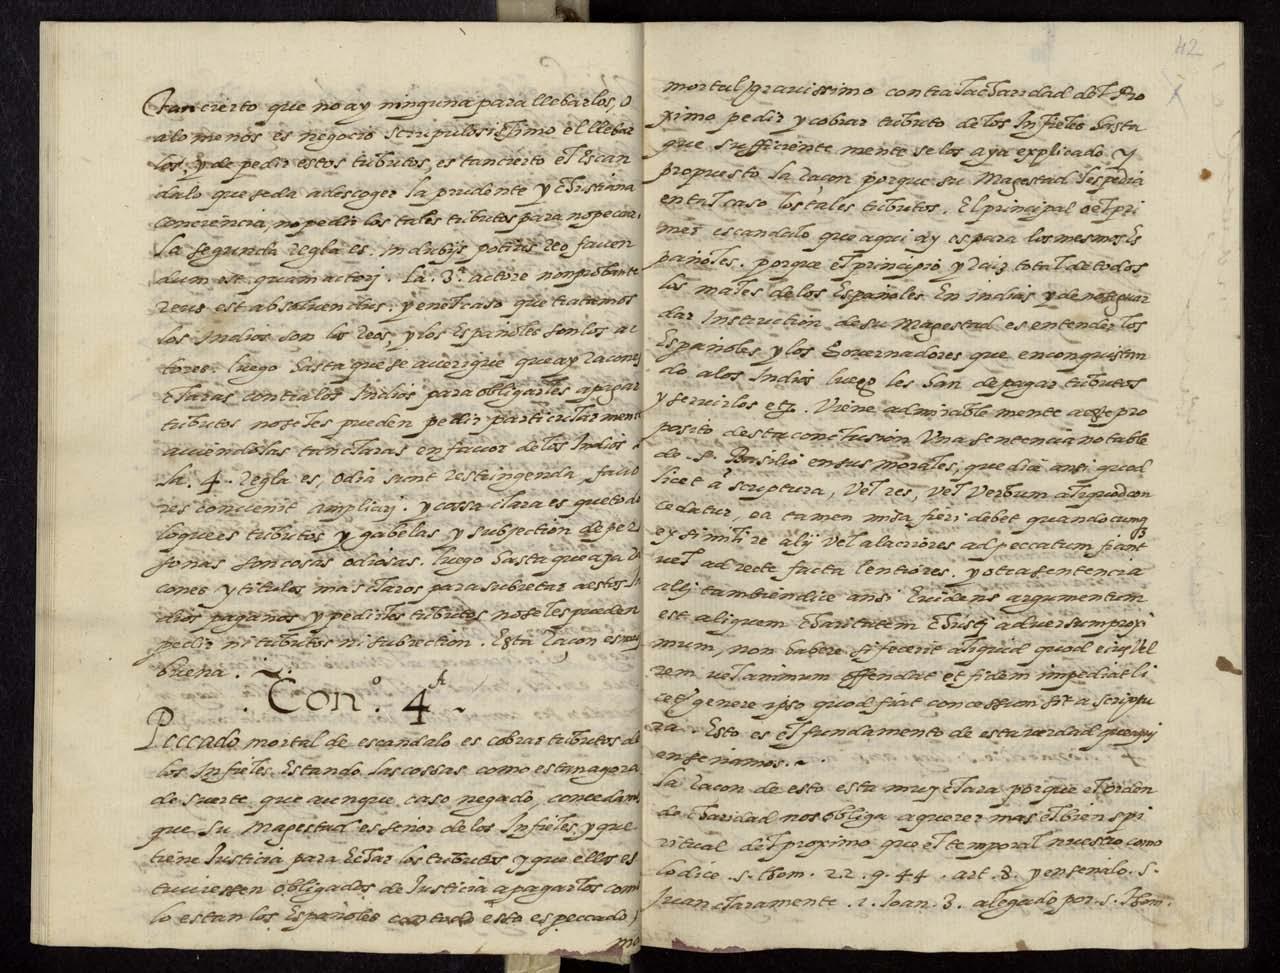 tan cierto que no ay ninguna para llebarlos, o
a lo menos es negocio scrupulosissimo el llebar
los, y de pedir estos tributos, es tan cierto el escan
dalo que se da a descoger la prudente y christiana
conciencia, no pedir los tales tributos para no pecar.
La segunda regla es. in dubijs potius reo fauen
dum est quam actori. La .3ª. actore non probante
reus est absoluendus. y en el caso que tratamos
los Indios son los Reos, y los Españoles son los ac
tores. luego hasta que se auerigue que ay racones
claras contra los Indios para obligarles a pagar
tributos no se les pueden pedir particularmente
auiendolas tan claras en fauor de los Indios
La .4. regla es, Odia sunt restringenda, fauo
res conuenit ampliarj. y cossa clara es que todo
lo que es tributos y gabelas y subjection de per
sonas son cosas odiosas. luego hasta que aja ra
cones y titulos mas claros para subietar a estos In
dios paganos y pedirles tributos no se les pueden
pedir ni tributos ni subiection. Esta racon es muy
buena.
. Con.º 4.ª
Peccado mortal de escandalo es cobrar tributos de
los Infieles. Estando las cossas como estan agora
de suerte que aunque caso negado, concedamos
que su Magestad es señor de los Infieles, y que
tiene Justicia para echar los tributos y que ellos es
tuuiessen obligados de Justicia a pagarlos como
lo estan los Españoles con todo esto es peccado
mo
42
mortal grauissimo contra la charidad del Pro
ximo pedir y cobrar tributo de los Infieles hasta
que sufficientemente se los aya explicado y
propuesto la racon porque su Magestad les pedia
en tal caso los tales tributos. El principal o el pri
mer escandalo que aqui ay es para los mesmos Es
pañoles. porque el principio y raiz total de todos
los males de los Españoles en indias y de no guar
dar Instruction de su Magestad es entender los
Españoles y los Gouernadores que en conquistan
do a los Indios luego les han de pagar tributos
y seruirlos etc. Viene admirablemente a este pro
posito desta conclusion Vna sentencia notable
de .S. Basilio en sus morales, que dice ansi quod
licet à scriptura, vel res, vel verbum aliquod con
cedatur, ea tamen missa fieri debet quandocunq
ex simili re alij vel alacriores ad peccatum fiant
vel ad recte facta lentiores. y otra sentencia
alli tambien dice ansi Euidens argumentum
est aliquem charitatem Christj aduersum proxi
mum, non habere si fecerit aliquid quod eius vel
rem vel animum offendat et fidem impediat li
cet genere ipso quod fiat concessum sit a scriptu
ra. Esto es el fundamento de esta verdad que aqui
enseñamos.
La racon de esto esta muy clara porque el orden
de charidad nos obliga a querer mas el bien spi
ritual del proximo que el temporal nuestro como
lo dice .S. Thom. 22. q. 44. art. 8. y enseñalo .S.
Juan claramente. 1. Ioan. 3. alegado por .S. Thom.